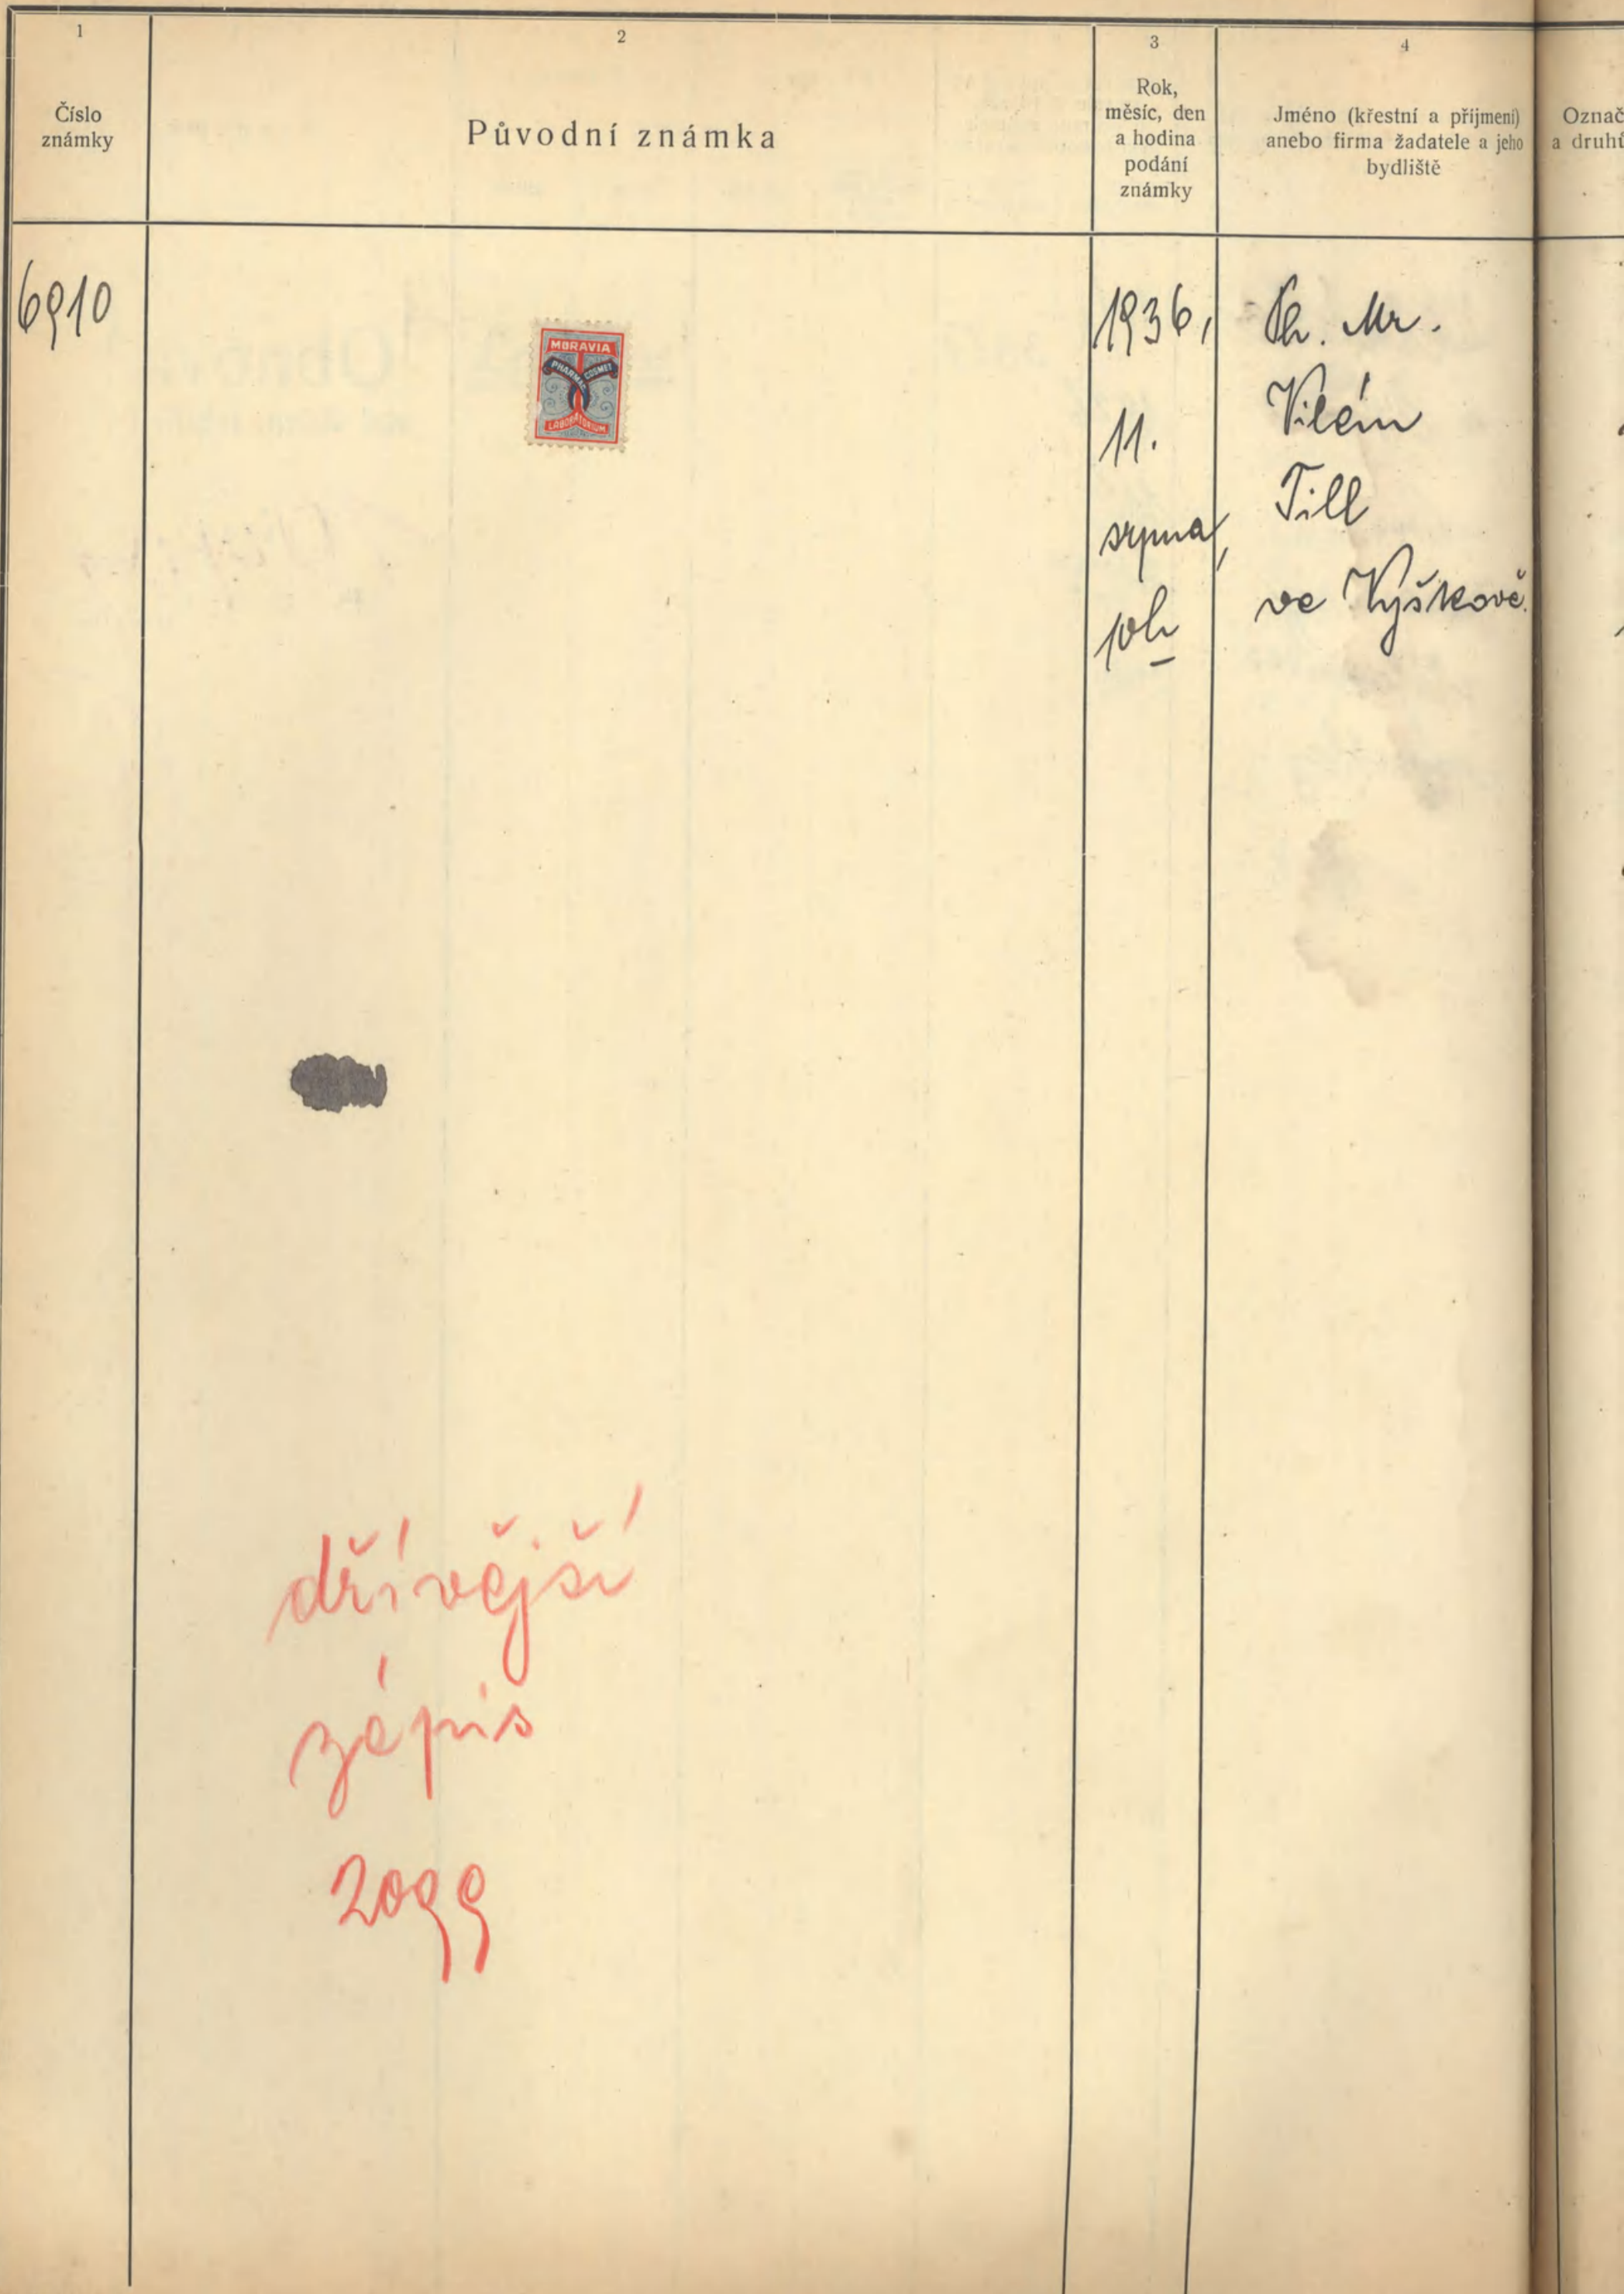 1
Číslo
známky
2
Původní známka
3
Rok,
měsíc, den
a hodina
podání
známky
4
Jméno (křestní a příjmení)
anebo firma žadatele a jeho
bydliště
Označ
a druhů
6910
MORAVIA
PHARMAC. COSMET
LABORATORIUM
1936,
11.
srpna,
10h
Ph. Mr.
Vilém
Till
ve Vyškově.
dřívější
zápis
2099